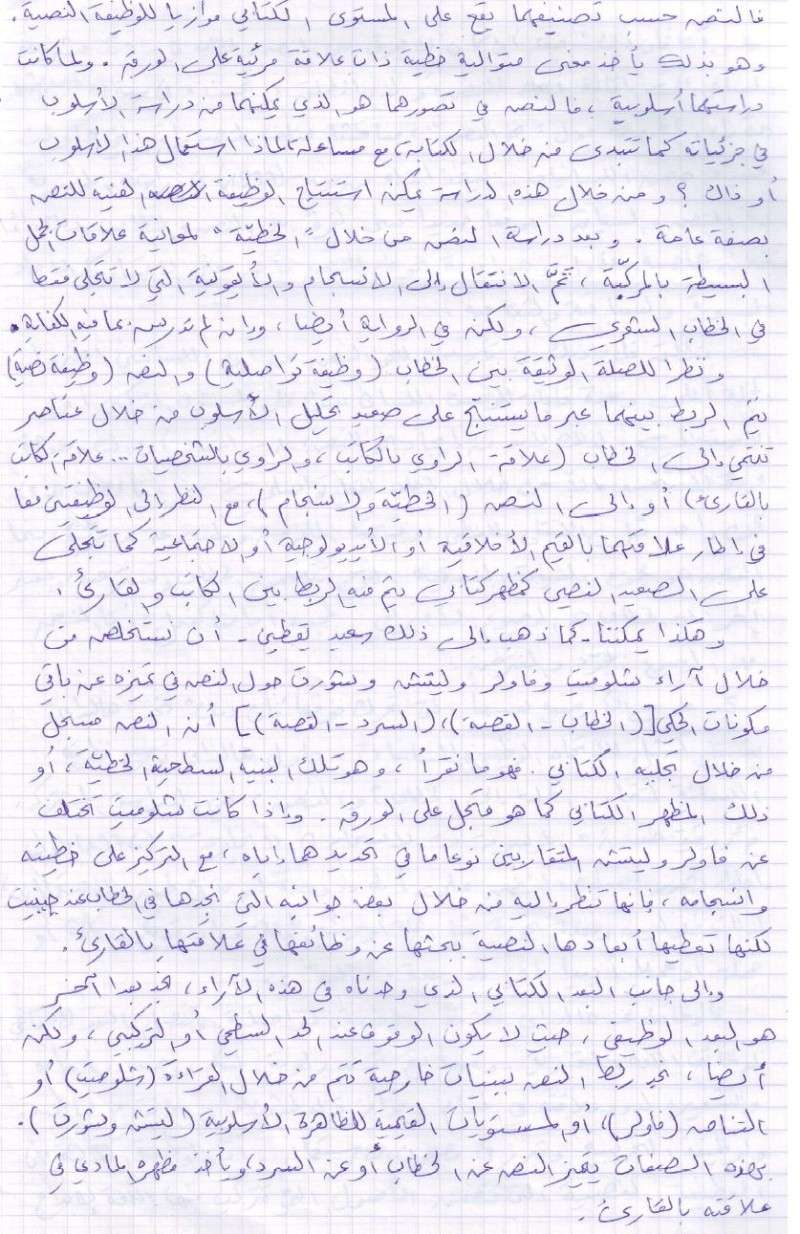 فالنص حسب تصنيفهما يقع على المستوى الكتابي موازيا للوظيفة النصية.
وهو بذلك يأخذ معنى متوالية خطية ذات علاقة مرئية على الورقة. ولما كانت
دراستهما أسلوبية، فالنص في تصورهما هو الذي يمكنهما من دراسة الأسلوب
في جزئياته كما تتبدى من خلال الكتابة، مع مساءلة: لماذا استعمال هذا الأسلوب
أو ذاك؟ ومن خلال هذه الدراسة يمكن استنتاج الوظيفة الفنية للنص
بصفة عامة. وبعد دراسة النص من خلال "الخطيّة" لمعانية علاقات الجمل
البسيطة بالمركّبة، تمَّ الانتقال إلى الانسجام والأيقونية التي لا تتجلى فقط
في الخطاب الشعري، ولكن في الرواية أيضا، وإن لم تدرس بما فيه الكفاية.
ونظرا للصلة الوثيقة بين الخطاب (وظيفة تواصلية) والنص (وظيفة نصية)
يتم الربط بينهما عبر ما يستنتج على صعيد تحليل الأسلوب من خلال عناصر
تنتمي إلى الخطاب (علاقة الراوي بالكاتب، والراوي بالشخصيات... علاقة الكاتب
بالقارئ) أو إلى النص (الخطيّة والانسجام)، مع النظر إلى الوظيفتين معا
في إطار علاقتهما بالقيم الأخلاقية أو الأيديولوجية أو الاجتماعية كما تتجلى
على الصعيد النصي كمظهر كتابي يتم فيه الربط بين الكاتب والقارئ.
وهكذا يمكننا - كما ذهب إلى ذلك سعيد يقطين - أن نستخلص من
خلال آراء شلوميت وفاولر وليتش وشورت حول النص في تميزه عن باقي
مكونات الحكي [(الخطاب - القصة)، (السرد - القصة)] أن النص مسجل
من خلال تجليه الكتابي. فهو ما نقرأ، وهو تلك البنية السطحية الخطيّة، أو
ذلك المظهر الكتابي كما هو متجل على الورقة. وإذا كانت شلوميت تختلف
عن فاولر وليتش المتقاربين نوعا ما في تحديدهما إياه، مع التركيز على خطيته
وانسجامه، فإنها تنظر إليه من خلال بعض جوانبه التي نجدها في الخطاب عند جينيت
لكنها تعطيها أبعادها النصية ببحثها عن وظائفها في علاقتها بالقارئ.
وإلى جانب البعد الكتابي الذي وجدناه في هذه الآراء، نجد بعدا آخر
هو البعد الوظيفي، حيث لا يكون الوقوف عند الحد السطحي أو التركيبي، ولكنه
أيضا، نجد ربط النص ببنيات خارجية تتم من خلال القراءة (شلوميت) أو
التناص (فاولر)، أو المستويات القيمية للظاهرة الأسلوبية (ليتش وشورت).
بهذه الصفات يتميز النص عن الخطاب أو عن السرد، ويأخذ مظهره المادي في
علاقته بالقارئ.